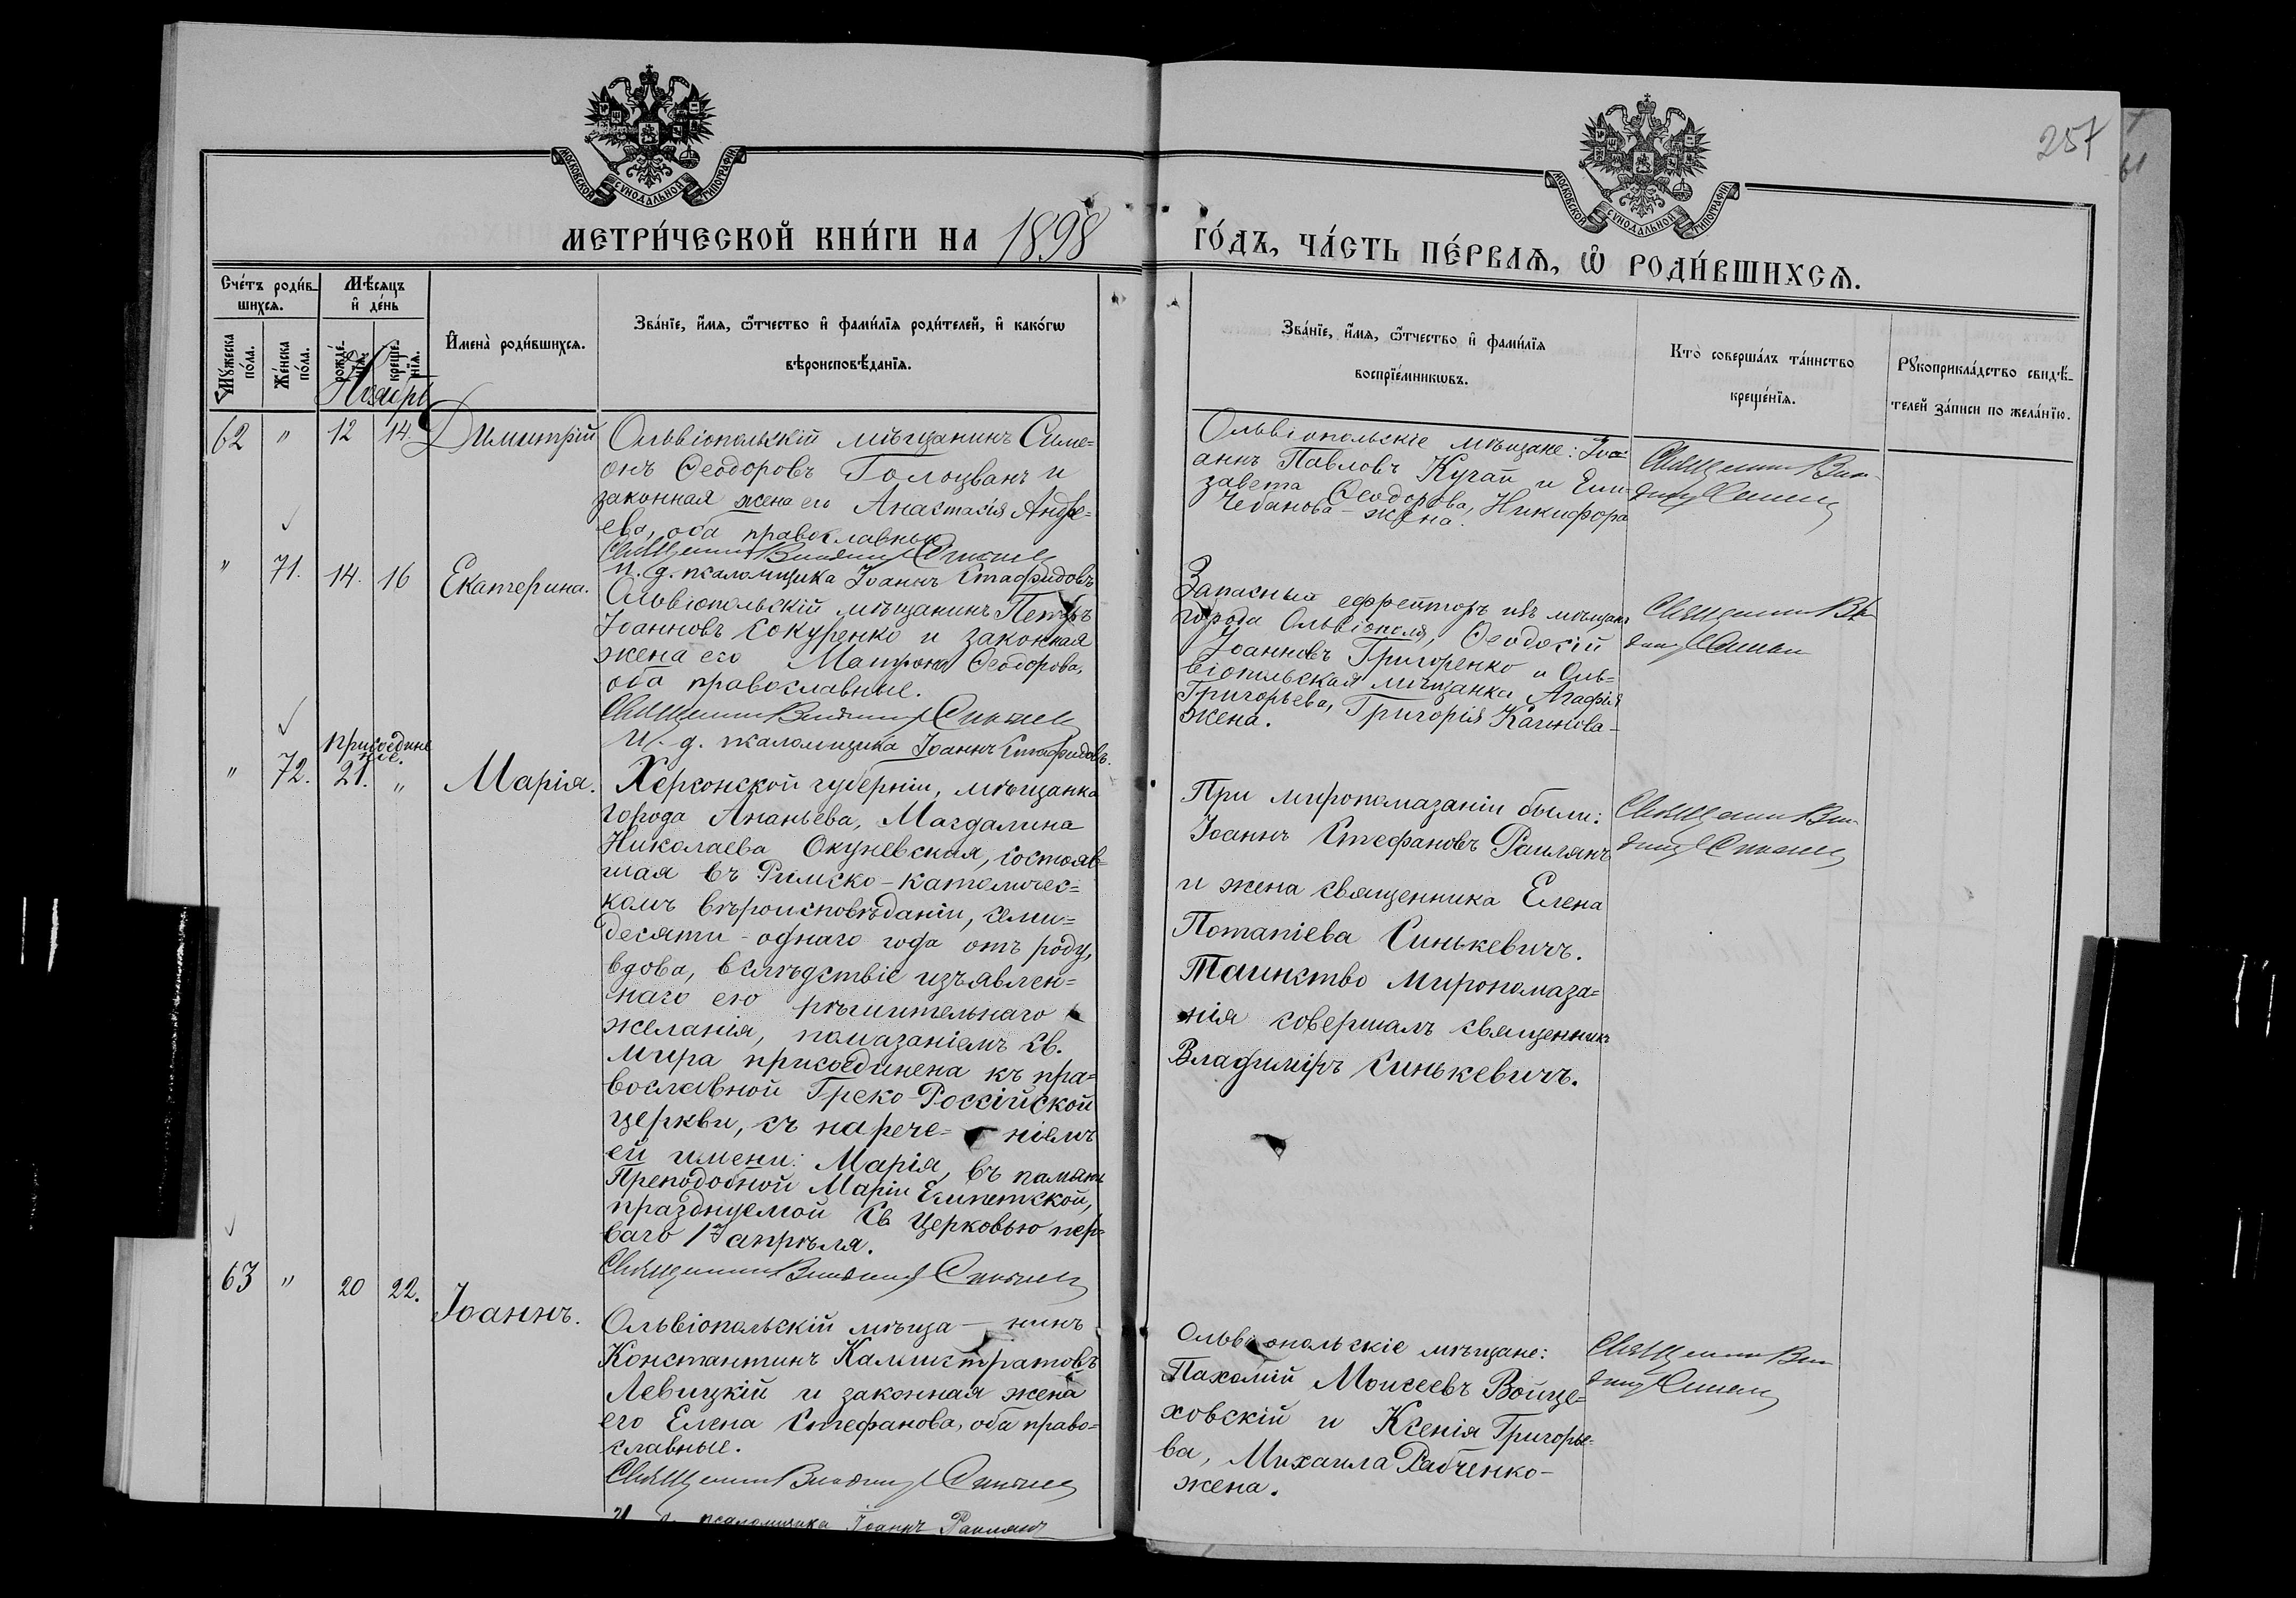 257
МОСКОВСКОЙ СУНОДАЛЬНОЙ ТИПОГРАФІИ
МОСКОВСКОЙ СУНОДАЛЬНОЙ ТИПОГРАФІИ
МЕТРИ́ЧЕСКОЙ КНИ́ГИ НА 1898
ГО́ДЪ, ЧА́СТЬ ПЕ́РВАѦ, Ѡ҆ РОДИ́ВШИХСѦ.
Сче́тъ роди́в-
шихсѧ.
Мѣ́сяцъ
и҆ де́нь
Мꙋ́жеска по́ла.
Же́нска по́ла.
рожде́-нїѧ.
креще́-нїѧ.
И҆мена̀ роди́вшихсѧ.
Зва́нїе, и҆́мѧ, ѻ҆́тчество и҆ фами́лїѧ роди́телей, и҆ како́гѡ
вѣроисповѣ́данїѧ.
Зва́нїе, и҆́мѧ, ѻ҆́тчество и҆ фами́лїѧ
воспрїе́мникѡвъ.
Кто̀ соверша́лъ та́инство
креще́нїѧ.
Рꙋкоприкла́дство свидѣ́-
телей за́писи по жела́нїю.
Ноябрь
62 " 12 14. Димитрій
Ольвіопольскій мѣщанинъ Симе=
онъ Ѳеодоровъ Голоцванъ и
законная жена его Анастасія Андре=
ева, оба православные
Священникъ Владиміръ Синькевичъ
И. д. псаломщика Іоаннъ Стафидовъ
Ольвіопольскіе мѣщане: Іо=
аннъ Павловъ Кучай и Ели=
завета Ѳеодорова, Никифора
Чебанова – жена.
Священникъ Вла-
диміръ Синькевичъ
" 71. 14. 16 Екатерина.
Ольвіопольскій мѣщанинъ Петръ
Іоанновъ Сокуренко и законная
жена его Матрона Ѳеодорова,
оба православные.
Священникъ Владиміръ Синькевичъ
И. д. псаломщика Іоаннъ Стафидовъ.
Запасный ефрейторъ изъ мѣщанъ
города Ольвіополя, Ѳеодосій
Іоанновъ Григоренко и Оль=
віопольская мѣщанка Агафія
Григорьева, Григорія –
жена.
Священникъ Вла-
диміръ Синькевичъ
присоедине
ніе.
" 72. 21. " Марія.
Херсонской губерніи, мѣщанка
города Ананьева, Магдалина
Николаева Окуневская, состояв=
шая въ Римско-католичес=
комъ вѣроисповѣданіи, семи=
десяти-однаго года отъ роду,
вдова, вслѣдствіе изъявлен=
наго ею рѣшительнаго
желанія, помазаніемъ Св.
Мира присоединена къ пра=
вославной Греко-Россійской
церкви, съ нарече= ніемъ
ей имени: Марія, въ память
Преподобной Маріи Египетской,
празднуемой Св Церковью пер=
ваго 1го апрѣля.
Священникъ Владиміръ Синькевичъ
При миропомазаніи были:
Іоаннъ Стефановъ Раилянъ
и жена священника Елена
Потапіева Синькевичъ.
Таинство Миропомаза=
нія совершалъ священникъ
Владиміръ Синькевичъ.
Священникъ Вла-
диміръ Синькевичъ
63 " 20 22. Іоаннъ.
Ольвіопольскій мѣща – нинъ
Константинъ Каллистратовъ
Левицкій и законная жена
его Елена Стефанова, оба право=
славные.
Священникъ Владиміръ Синькевичъ
И д. псаломщика Іоаннъ Раилянъ
Ольвіопольскіе мѣщане:
Пахомій Моисеевъ Войце=
ховскій и Ксенія Григорье=
ва, Михаила Рабченко –
жена.
Священникъ Вла-
диміръ Синькевичъ